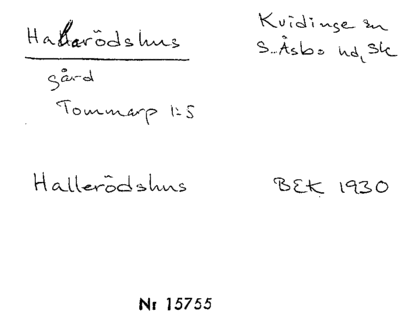 Hallerödshus
Kvidinge sn
S. Åsbo hd, Sk
gård
Tommarp 1:5
Hallerödshus
BEK 1930
Nr 15755